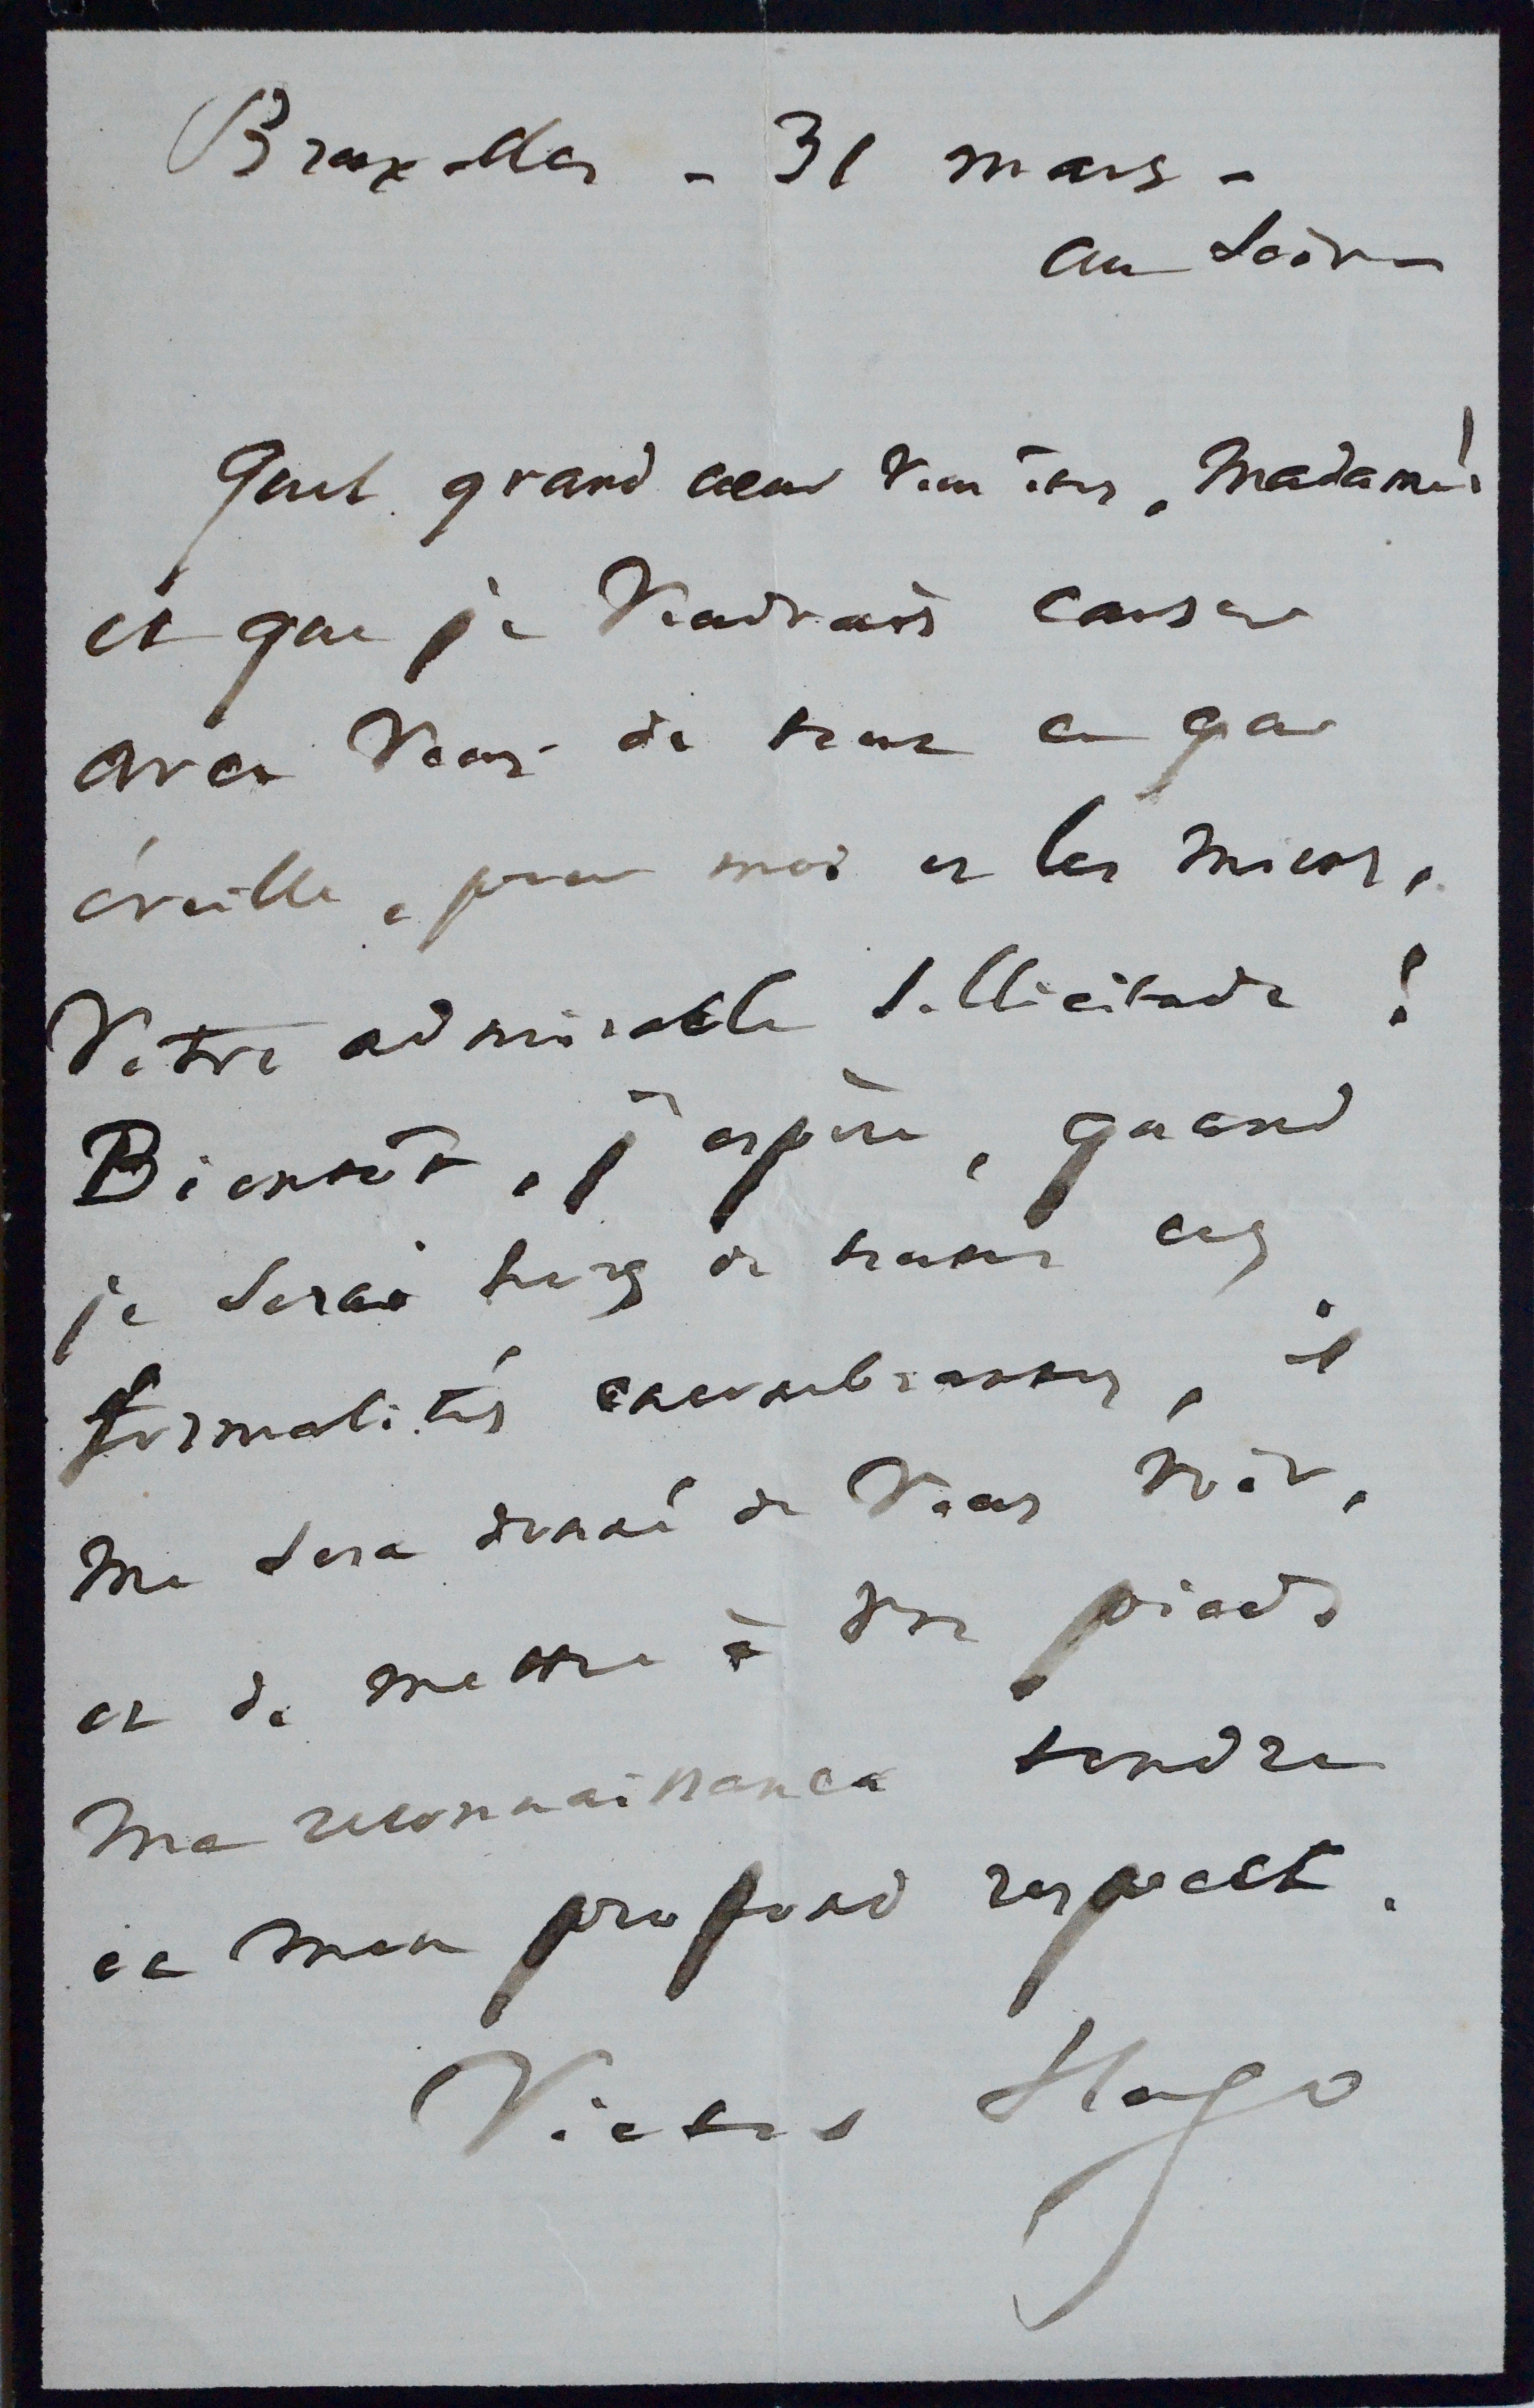 Bruxelles - 31 mars -
au soir -
Quel grand cœur vous êtes, Madame!
et que je voudrais causer
avec vous de tout ce que
éveille, pour moi et les miens,
votre admirable sollicitude !
Bientôt, j'espère, quand
je serai hors de toutes ces
formalités encombrantes, il
me sera donné de vous voir,
et de mettre à vos pieds
ma reconnaissance tendre
et mon profond respect.
Victor Hugo